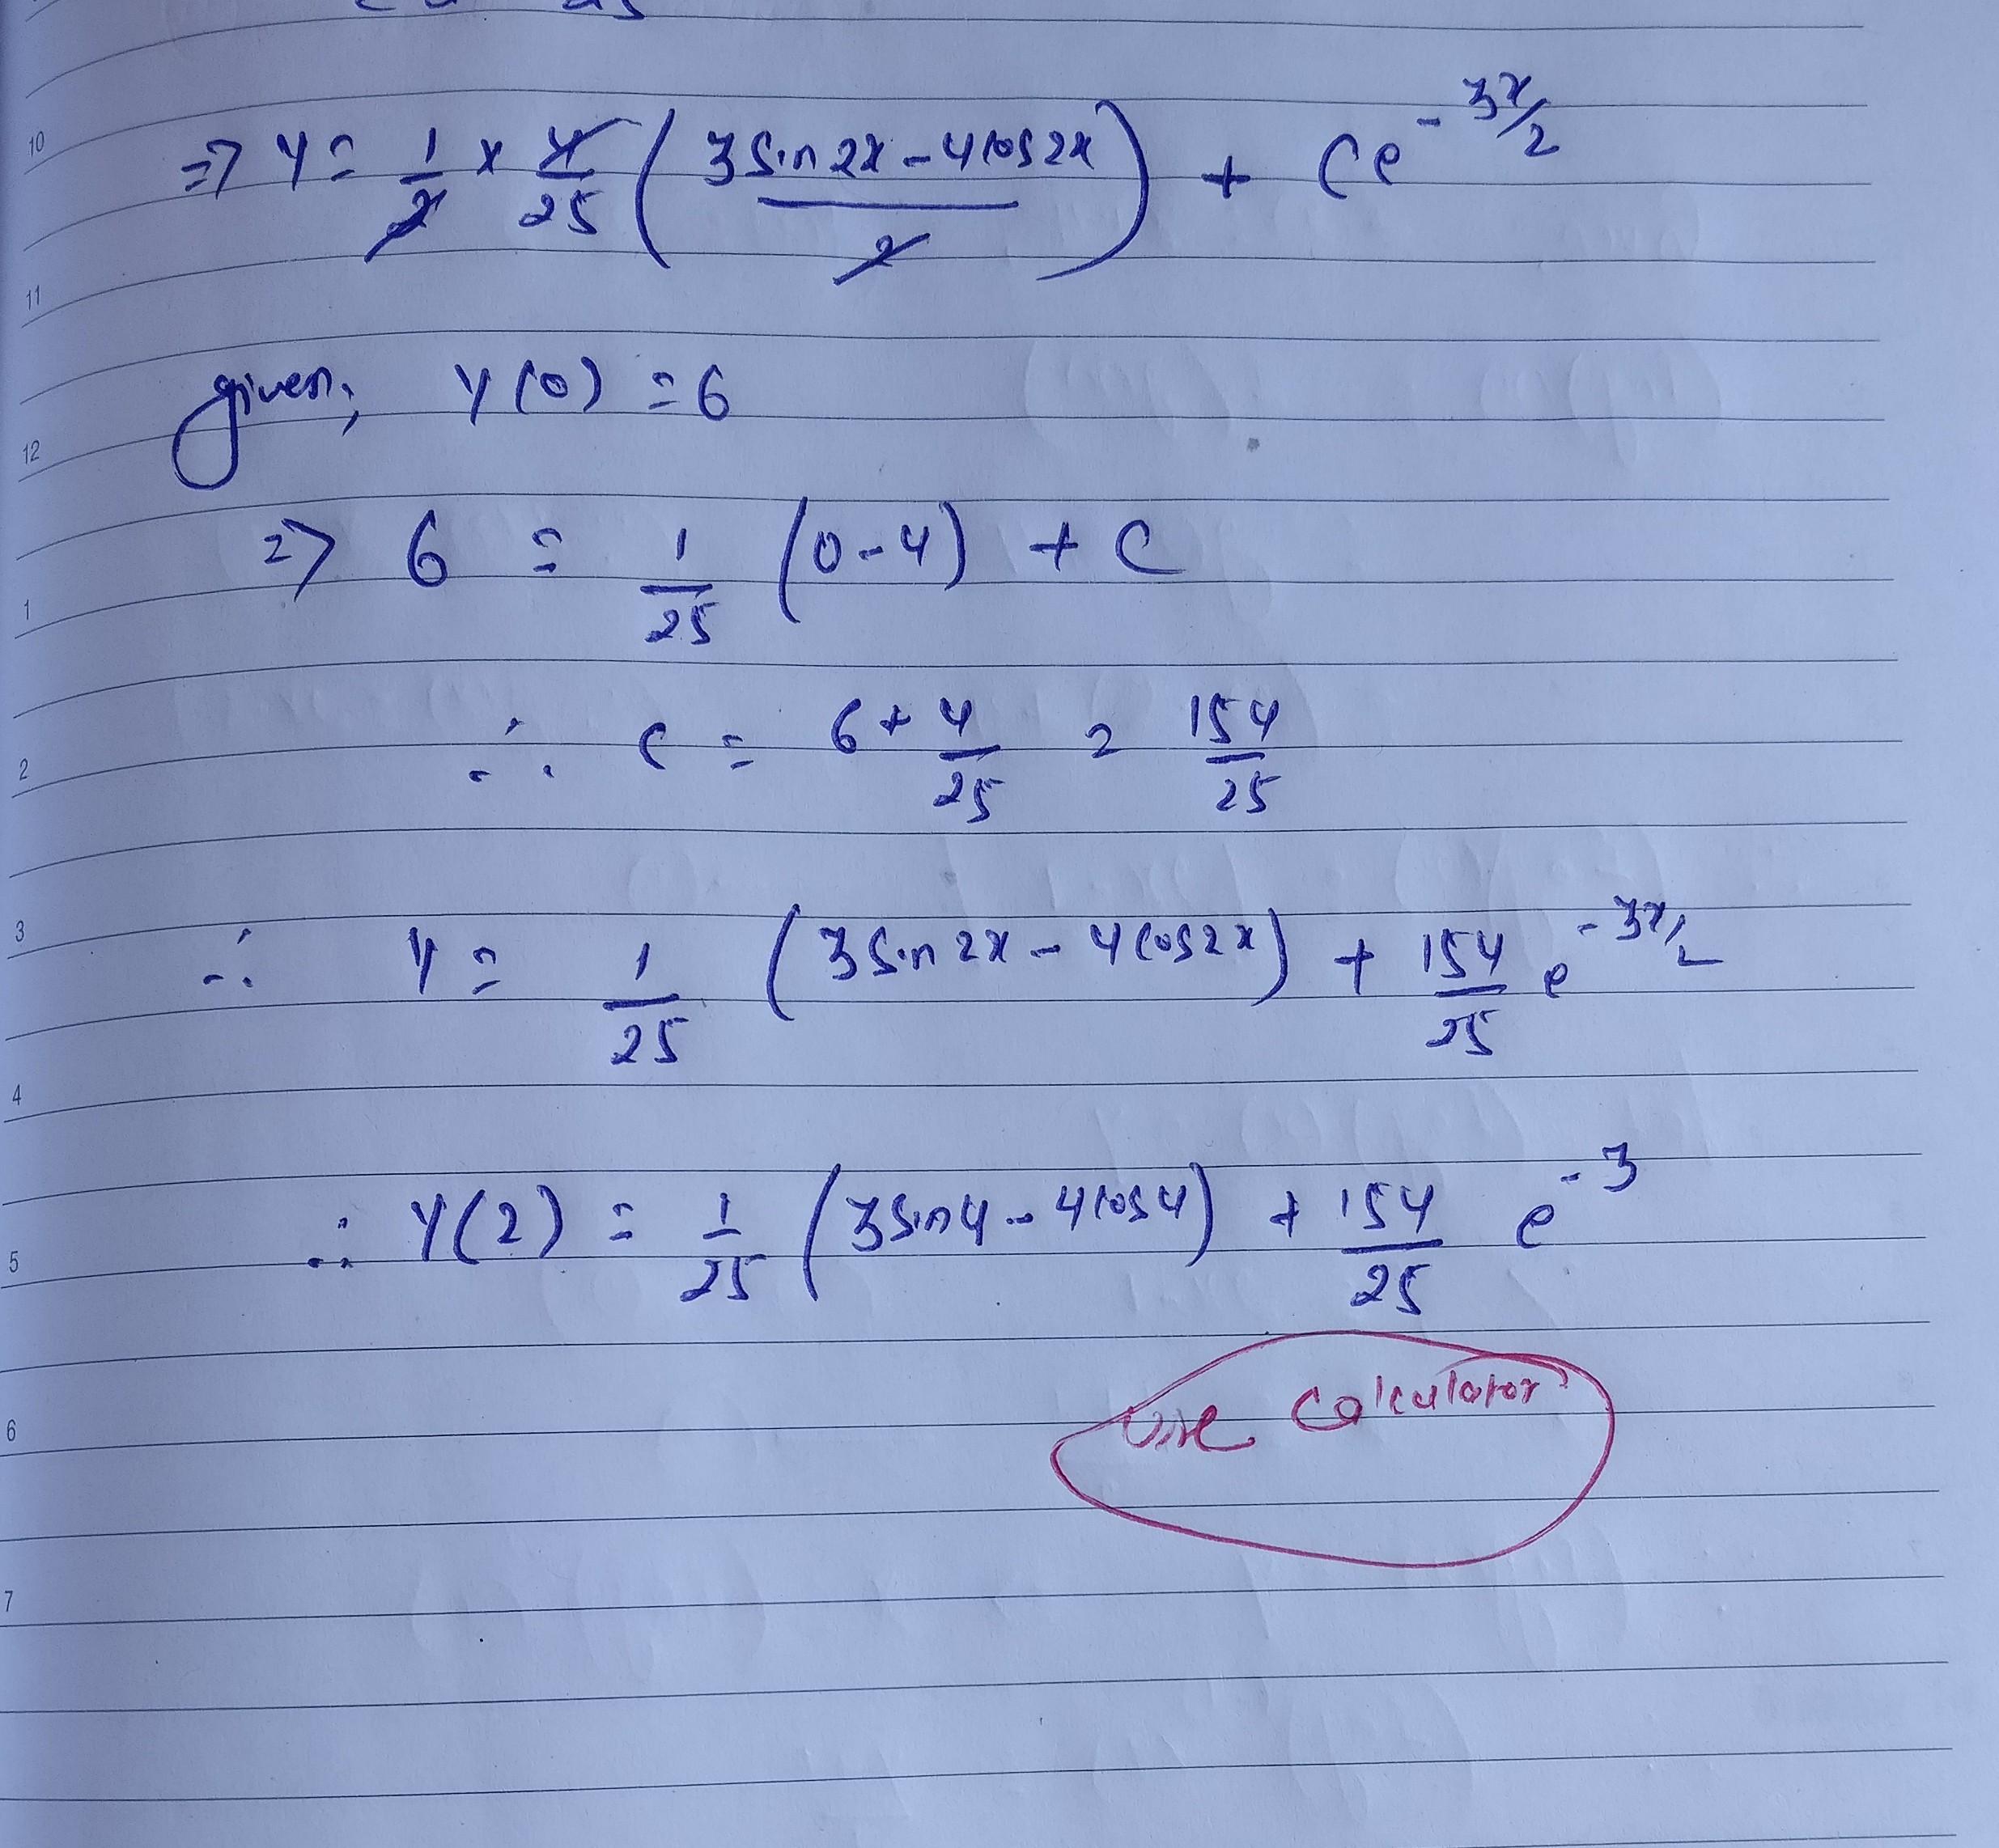 10
⇒ y = 1/2 × 4/25 ( (3 sin 2x - 4 cos 2x)/2 ) + Ce^(-3x/2)
11
given, y(0) = 6
12
⇒ 6 = 1/25 (0 - 4) + C
1
∴ C = 6 + 4/25 = 154/25
2
3
∴ y = 1/25 (3 sin 2x - 4 cos 2x) + 154/25 e^(-3x/2)
4
∴ y(2) = 1/25 (3 sin 4 - 4 cos 4) + 154/25 e^(-3)
5
use calculator
6
7